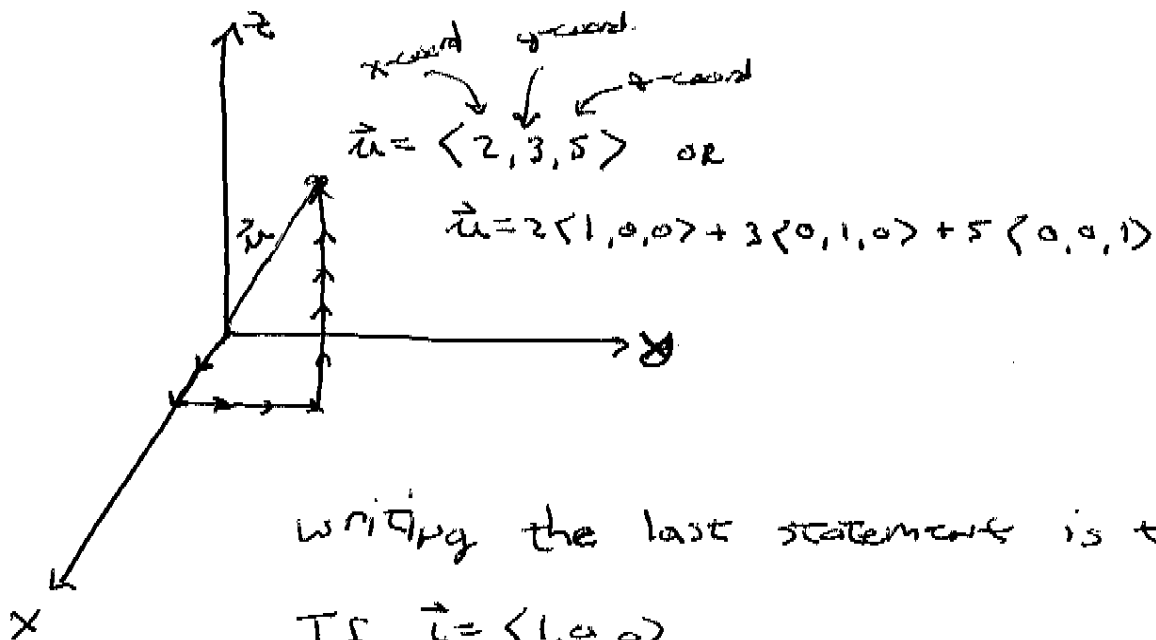 z
x-coord y-coord. z-coord
u⃗ = ⟨2, 3, 5⟩ OR
u⃗ = 2⟨1,0,0⟩ + 3⟨0,1,0⟩ + 5⟨0,0,1⟩
u⃗
y
writing the last statement is t
x
If i⃗ = ⟨1,0,0⟩